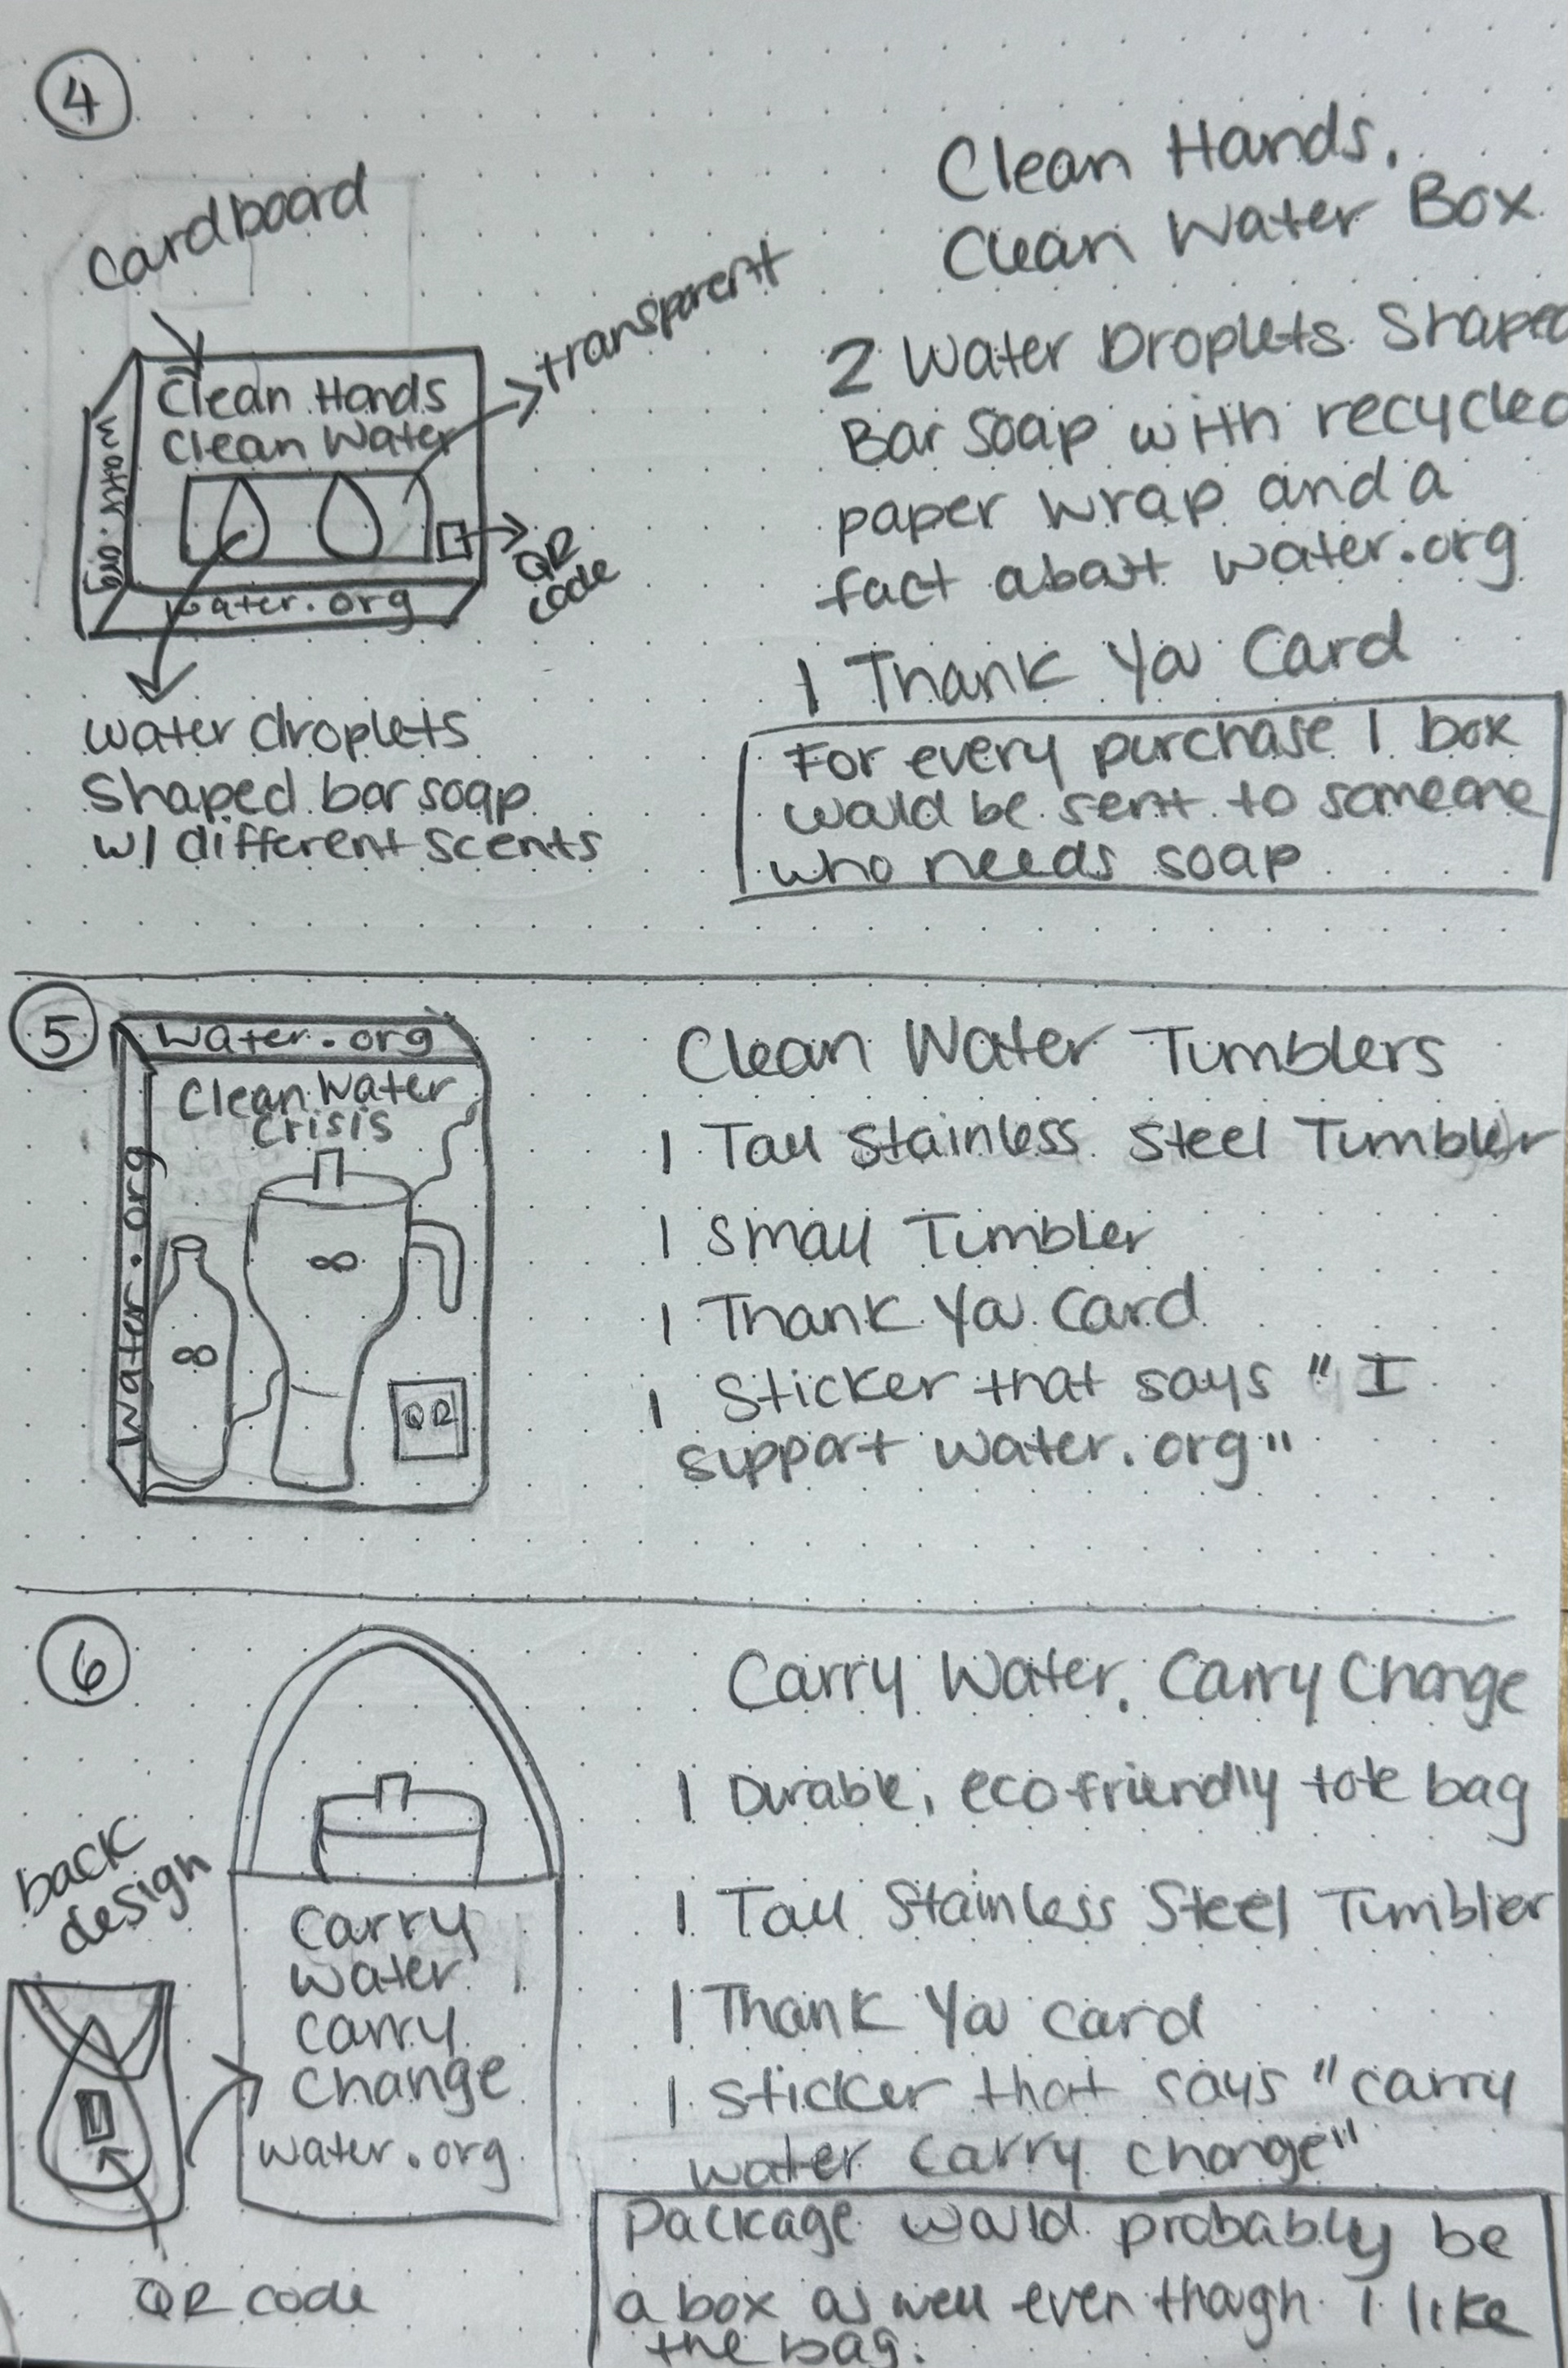 4
Cardboard
transparent
Clean Hands
Clean Water
water.org
water.org
QR
code
water droplets
shaped bar soap
w/ different scents
Clean Hands.
Clean Water Box
2 Water Droplets Shaped
Bar soap with recycled
paper wrap and a
fact about water.org
1 Thank You Card
For every purchase 1 box
would be sent to someone
who needs soap
5
water.org
water.org
Clean Water
Crisis
QR
Clean Water Tumblers
1 Tall Stainless Steel Tumbler
1 Small Tumbler
1 Thank You Card
1 Sticker that says "I
support water.org"
6
back
design
QR code
Carry
water
carry
change
water.org
Carry Water. Carry Change
1 Durable, ecofriendly tote bag
1 Tall Stainless Steel Tumbler
1 Thank You card
1 sticker that says "carry
water carry change"
Package would probably be
a box as well even though I like
the bag.